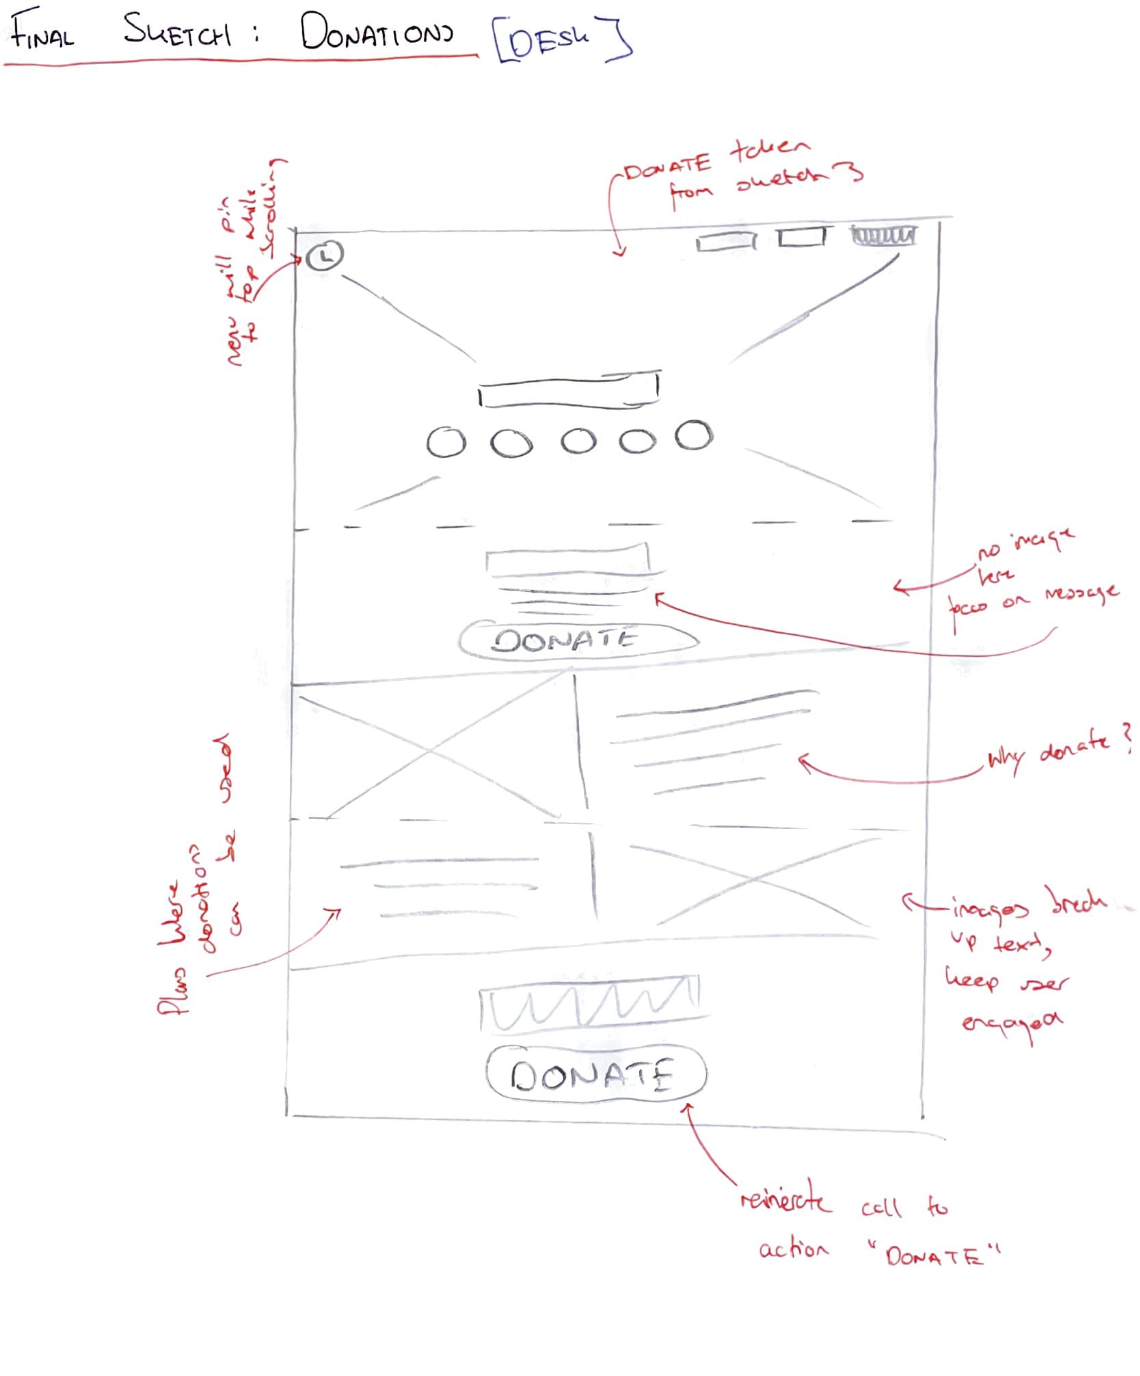 FINAL SKETCH: DONATIONS [DESK]
DONATE taken
from sketch 3
menu will pin
to top while
scrolling
L
no image
here
focus on message
DONATE
Why donate?
Plans where
donations
can be used
images break
up text,
keep user
engaged
DONATE
reinerate call to
action "DONATE"